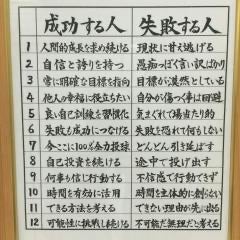 成功する人 失敗する人
1 人間的成長を求め続ける 現状に甘え逃げる
2 自信と誇りを持つ 愚痴っぽく言い訳ばかり
3 常に明確な目標を指向 目標が漠然としている
4 他人の幸福に役立ちたい 自分が傷つく事は回避
5 良い自己訓練を習慣化 気まぐれで場当り的
6 失敗も成功につなげる 失敗を恐れて何もしない
7 今ここに100%全力投球 どんどん引き延ばす
8 自己投資を続ける 途中で投げ出す
9 何事も信じ行動する 不信感で行動できず
10 時間を有効に活用 時間を主体的に創らない
11 できる方法を考える できない理由が先に出る
12 可能性に挑戦し続ける 不可能だ無理だと考える